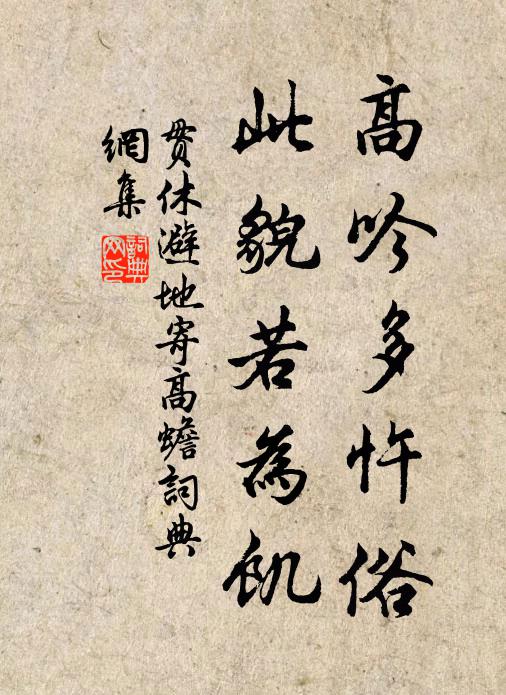 高吟多忤俗
此貌若為飢
貫休避地寄高蟾詞典
網集
詞典
網印